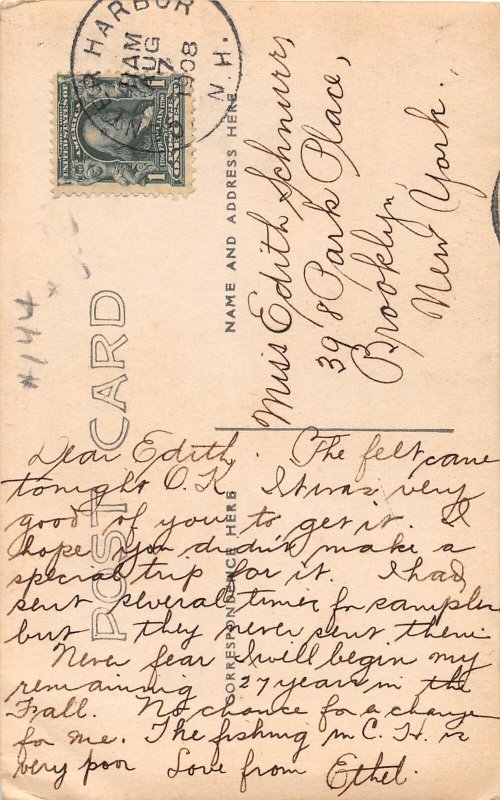 POST CARD
CORRESPONDENCE HERE
NAME AND ADDRESS HERE
HARBOR
N.H.
AM
AUG
7
1908
1
1
#144
Miss Edith Schnurr,
398 Park Place,
Brooklyn,
New York.
Dear Edith. The felt came
tonight O.K. It was very
good of you to get it. I
hope you didn't make a
special trip for it. I had
sent several times for samples
but they never sent them.
Never fear I will begin my
remaining 27 years in the
Fall. No chance for a change
for me. The fishing in C.H. is
very poor Love from Ethel.